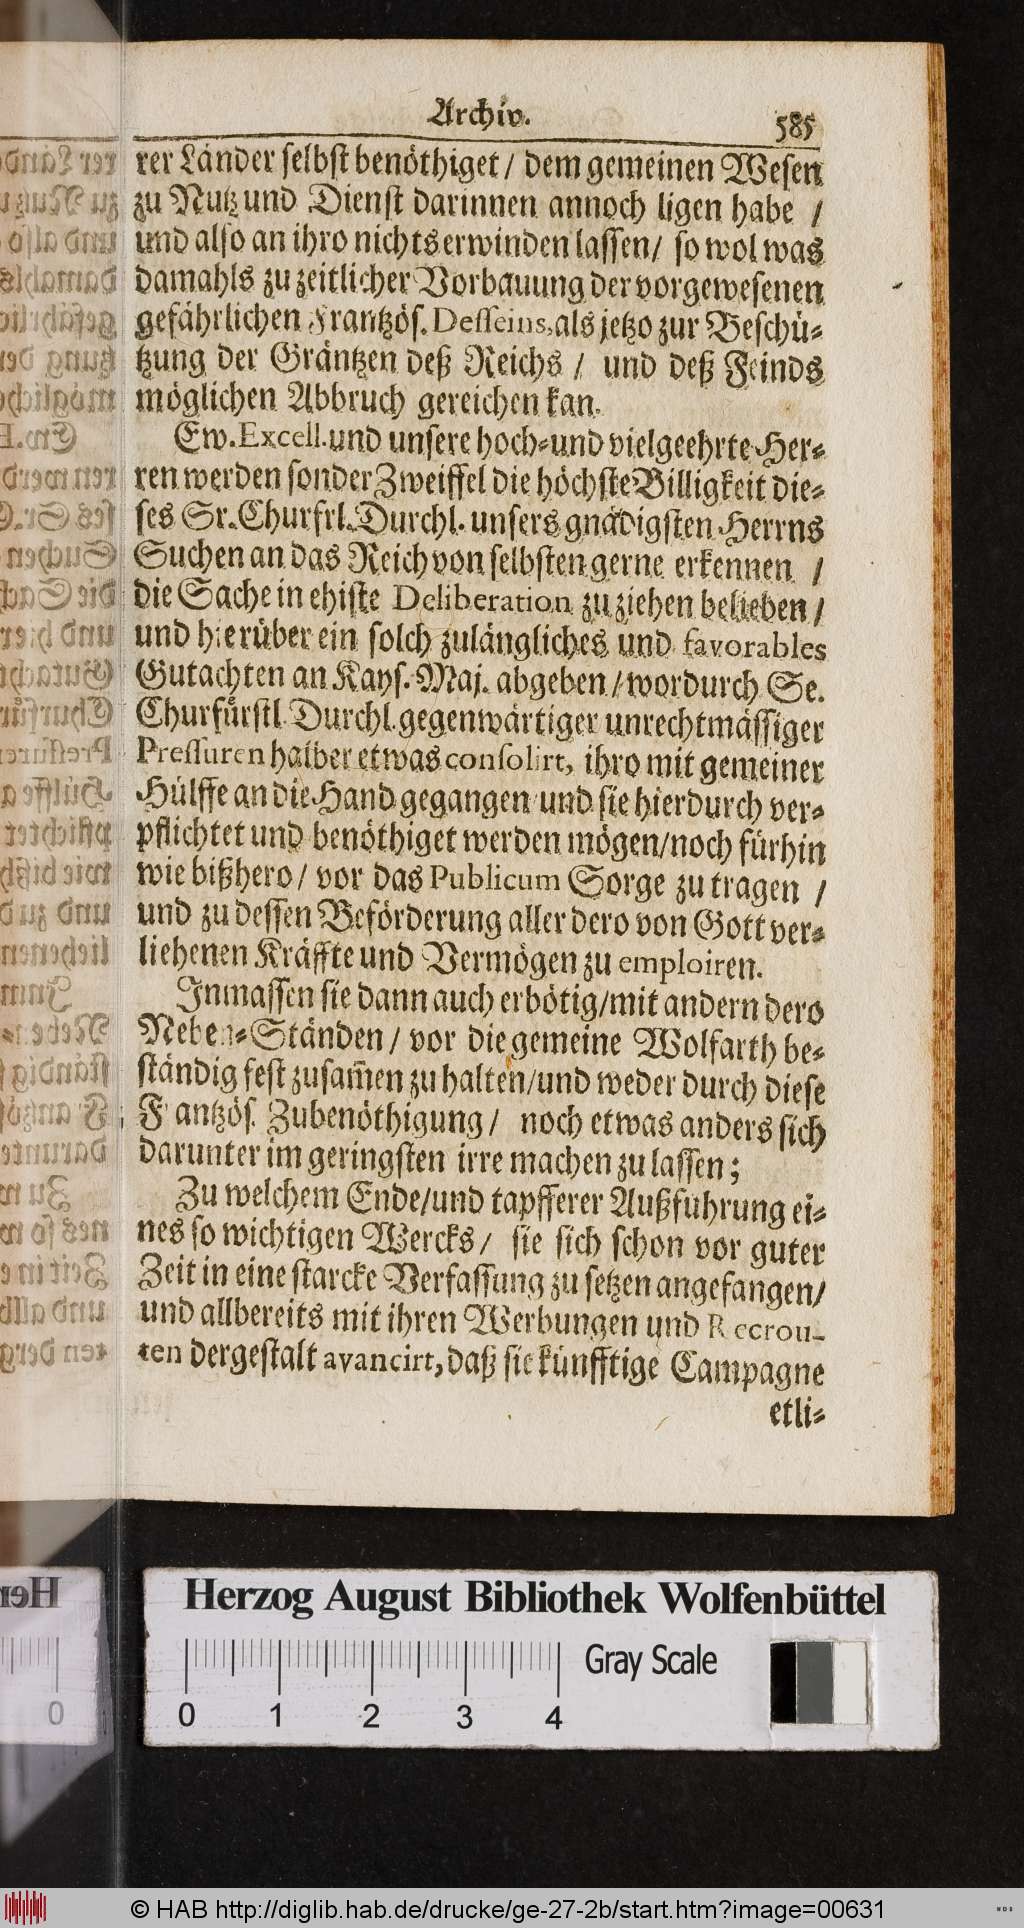 Archiv.
585
rer Länder selbst benöthiget / dem gemeinen Wesen
zu Nutz und Dienst darinnen annoch ligen habe /
und also an ihro nichts erwinden lassen / so wol was
damahls zu zeitlicher Vorbauung der vorgewesenen
gefährlichen Frantzös. Desseins, als jetzo zur Beschü-
tzung der Gräntzen deß Reichs / und deß Feinds
möglichen Abbruch gereichen kan.
Ew. Excell. und unsere hoch- und vielgeehrte Her-
ren werden sonder Zweiffel die höchste Billigkeit die-
ses Sr. Churfrl. Durchl. unsers gnädigsten Herrns
Suchen an das Reich von selbsten gerne erkennen /
die Sache in ehiste Deliberation zu ziehen belieben /
und hierüber ein solch zulängliches und favorables
Gutachten an Kays. Maj. abgeben / wordurch Se.
Churfürstl. Durchl. gegenwärtiger unrechtmässiger
Pressuren halber etwas consolirt, ihro mit gemeiner
Hülffe an die Hand gegangen und sie hierdurch ver-
pflichtet und benöthiget werden mögen / noch fürhin
wie bißhero / vor das Publicum Sorge zu tragen /
und zu dessen Beförderung aller dero von Gott ver-
liehenen Kräffte und Vermögen zu emploiren.
Inmassen sie dann auch erbötig / mit andern dero
Neben-Ständen / vor die gemeine Wolfarth be-
ständig fest zusam̃en zu halten / und weder durch diese
Frantzös. Zubenöthigung / noch etwas anders sich
darunter im geringsten irre machen zu lassen;
Zu welchem Ende / und tapfferer Außfuhrung ei-
nes so wichtigen Wercks / sie sich schon vor guter
Zeit in eine starcke Verfassung zu setzen angefangen /
und allbereits mit ihren Werbungen und Recrou-
ten dergestalt avancirt, daß sie künfftige Campagne
etli-
Herzog August Bibliothek Wolfenbüttel
Gray Scale
0 1 2 3 4
© HAB http://diglib.hab.de/drucke/ge-27-2b/start.htm?image=00631